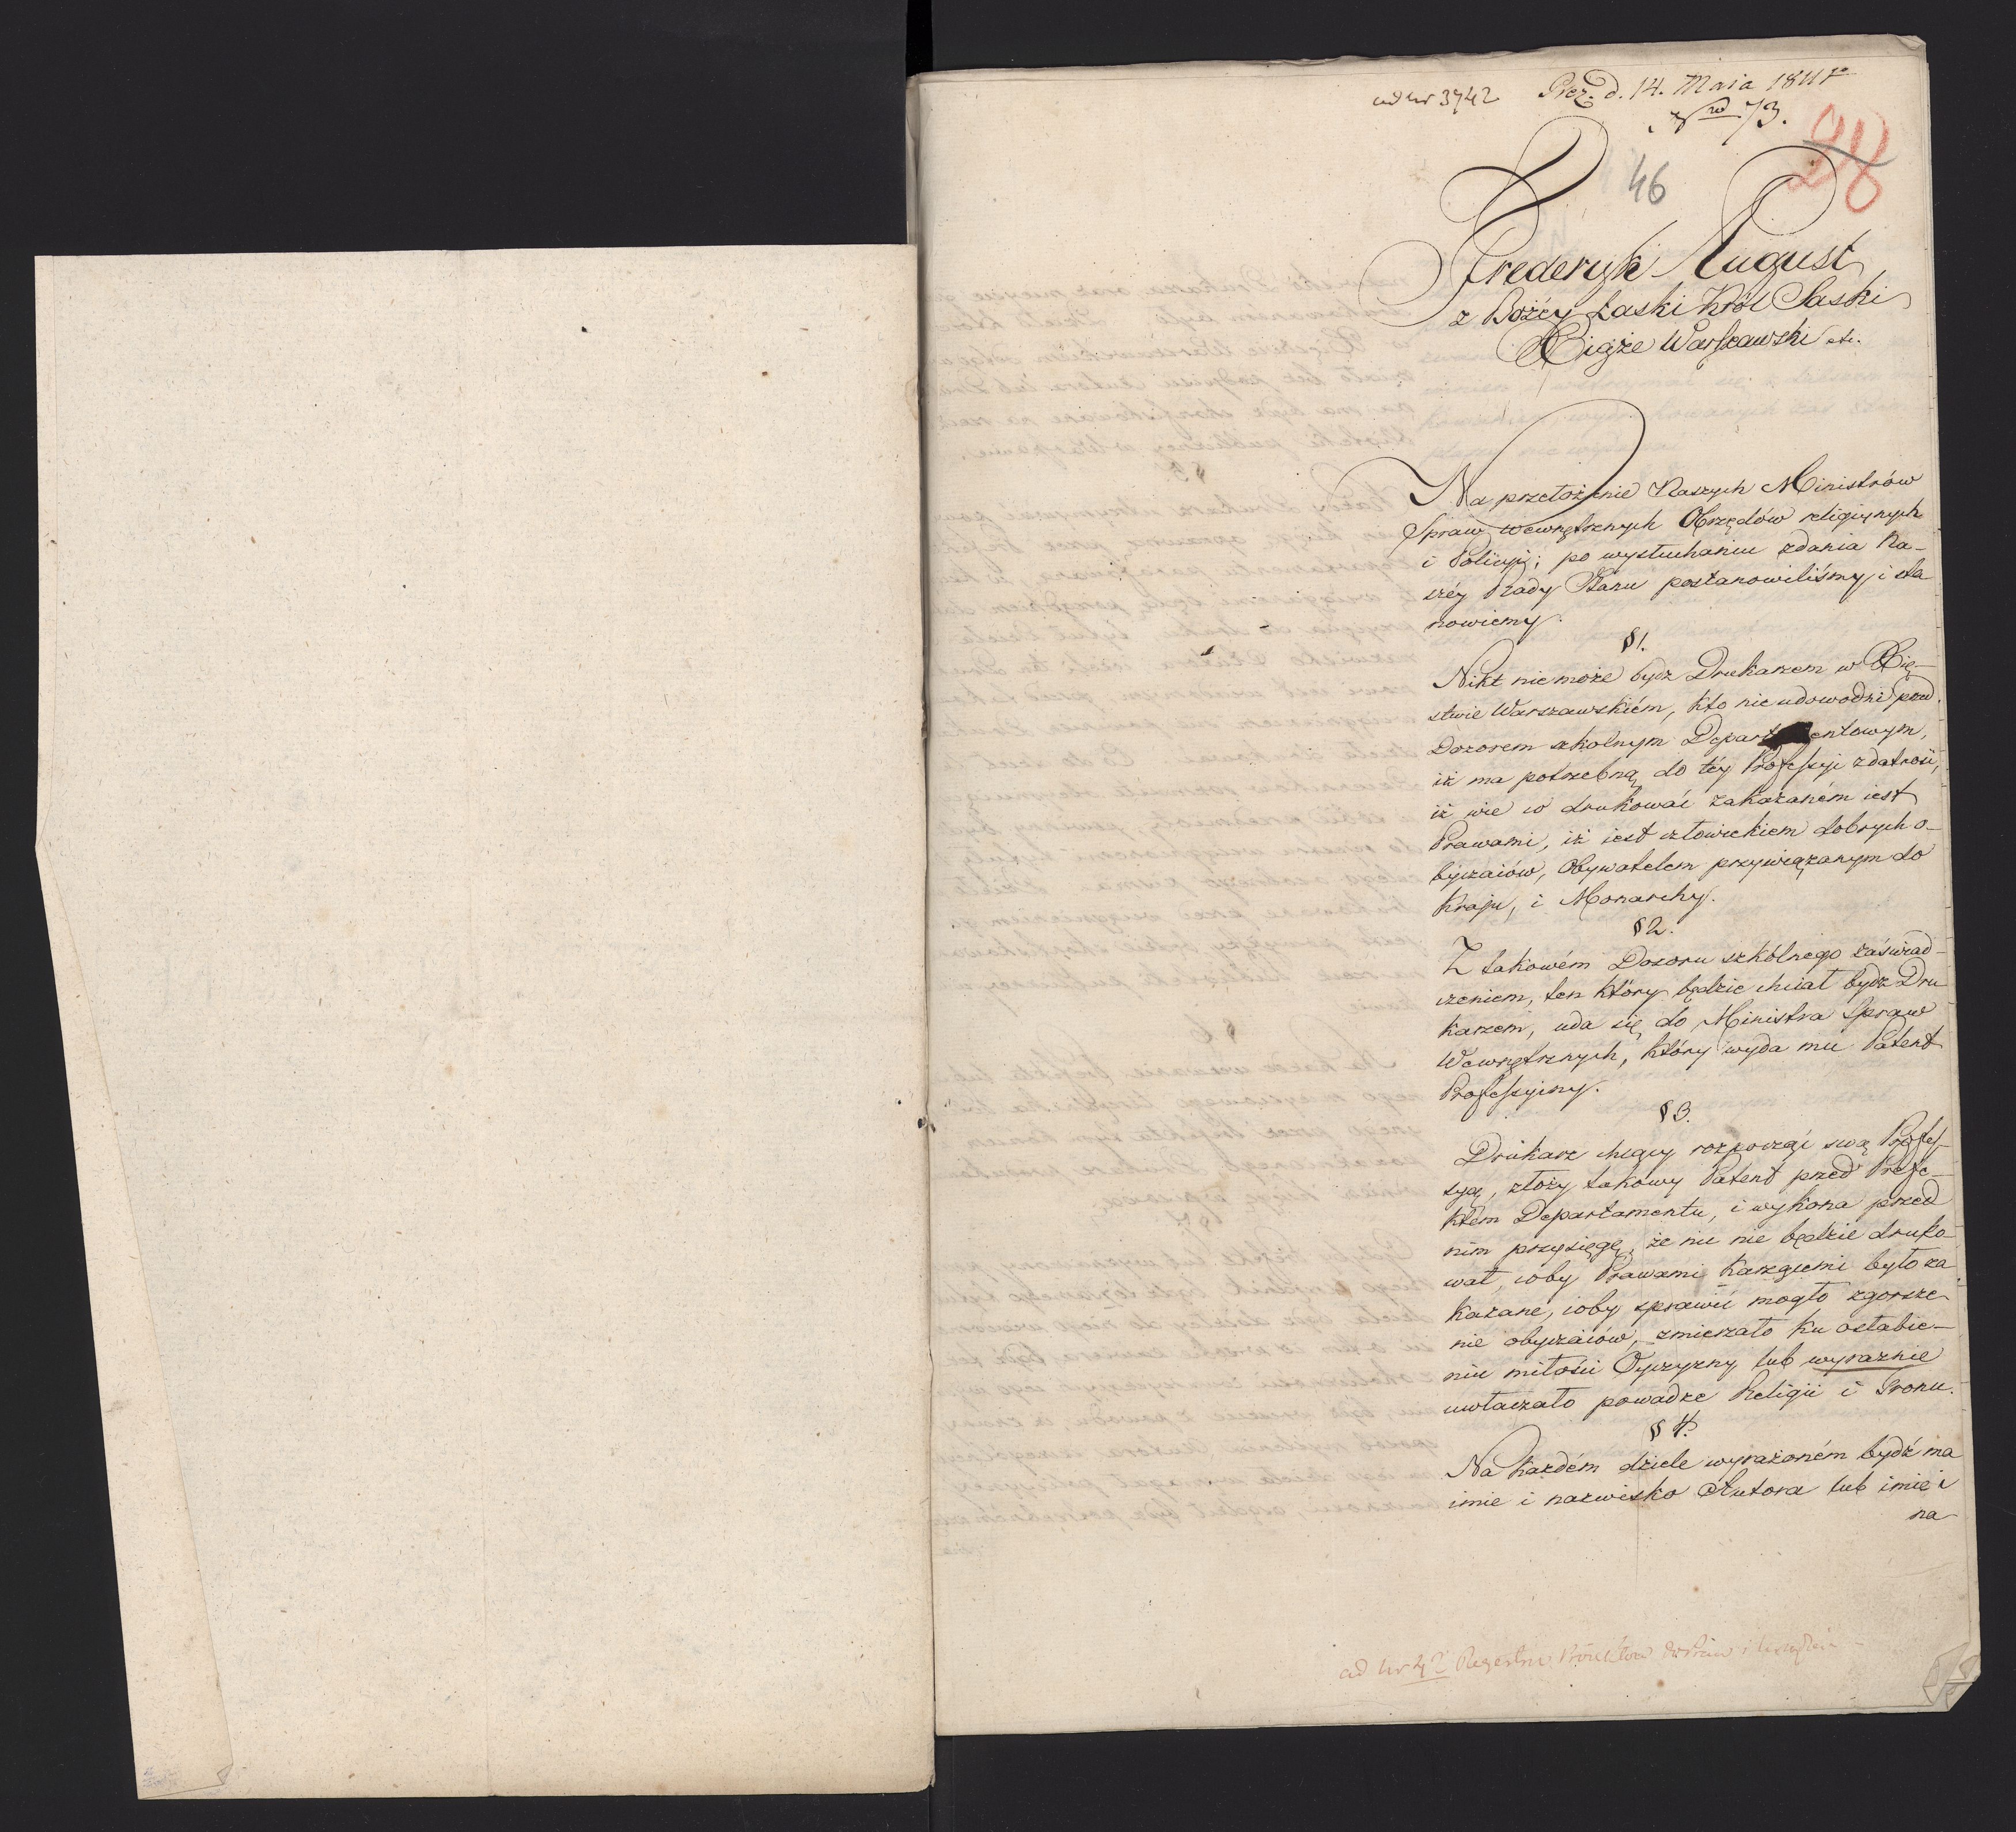 ad nr 3742 Prez. d. 14. Maia 1811 r
Nro 73.
46
Frederyk August
z Bożéy Łaski Król Saski
Xiąże Warszawski etc.
Na przełożenie Naszych Ministrów
Spraw wewnętrznych Obrzędów religiynych
i Policyi; po wysłuchaniu zdania Na-
széy Rady Stanu postanowiliśmy i sta
nowiemy.
§ 1.
Nikt nie może bydz Drukarzem w Xię-
stwie Warszawskiém, kto nie udowodni pod
Dozorem szkolnym Departamentowym,
iż ma potrzebną do téy Professyi zdatność,
iż wie co drukować zakazaném iest
Prawami, iż iest człowiekiem dobrych o-
byczaiów, Obywatelem przywiązanym do
Kraju, i Monarchy.
§ 2.
Z takowém Dozoru szkólnego zaświad-
czeniem, ten który będzie chciał bydz Dru
karzem, uda się do Ministra Spraw
Wewnętrznych, który wyda mu Patent
Professyiny.
§ 3.
Drukarz chcący rozpocząć swą Profes-
syą, złoży takowy Patent przed Prefe-
ktem Departamentu, i wykona przed
nim przysięgę, że nic nie będzie druko-
wał, coby Prawami Karzącemi było za
kazane, coby sprawić mogło zgorsze-
nie obyczaiów, zmierzało ku osłabie-
niu miłości Oyczyzny lub wyraznie
uwłaczało powadze Religii i Tronu.
§ 4.
Na każdém dziele wyrażoném bydź ma
imie i nazwisko Autora lub imię i
na-
ad nr 4